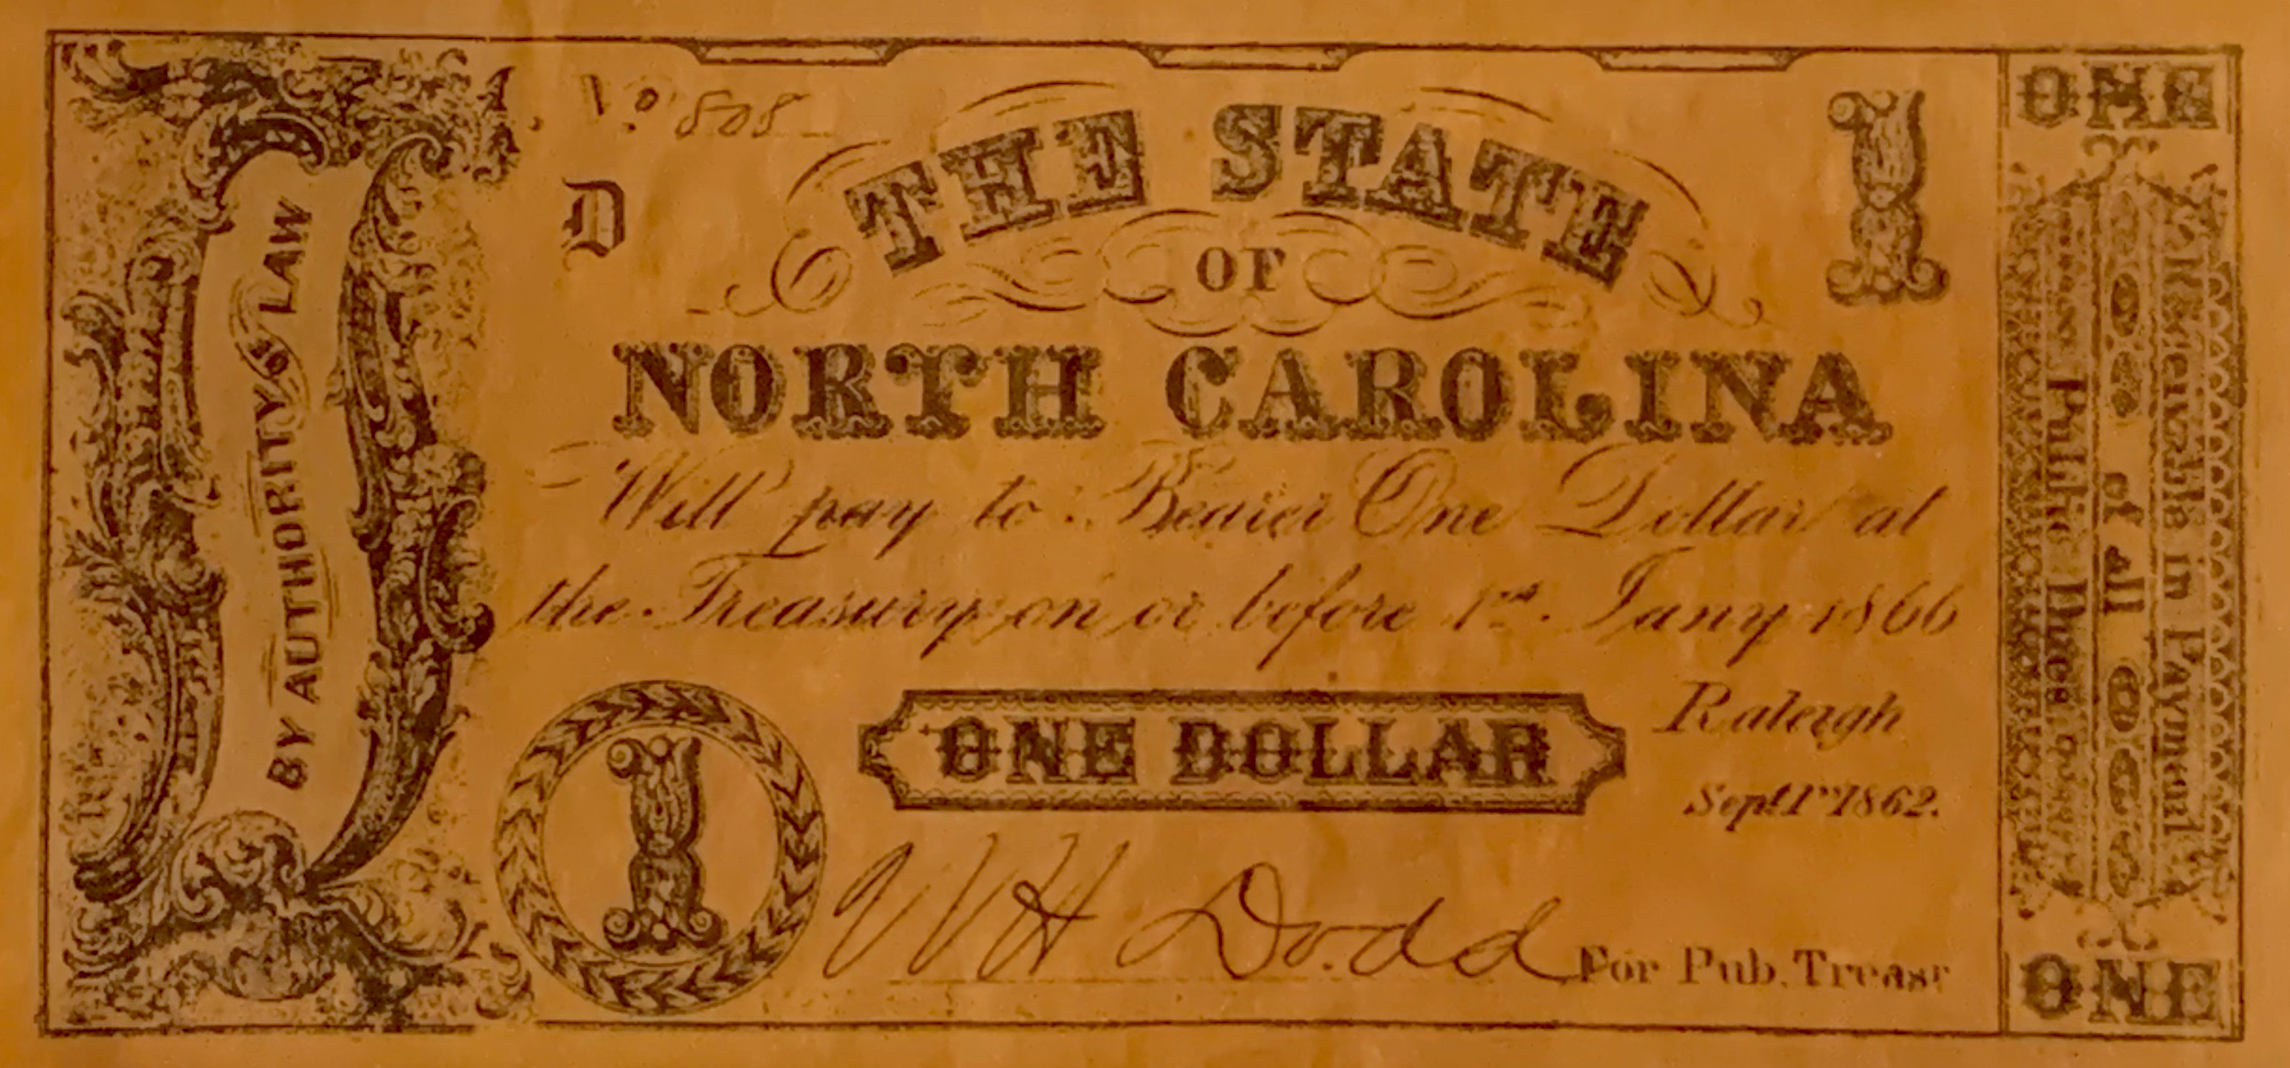 BY AUTHORITY OF LAW
No 808
D
1
THE STATE
OF
NORTH CAROLINA
Will pay to Bearer One Dollar at
the Treasury on or before 1st Jany 1866
1
ONE DOLLAR
Raleigh
Sept 1st 1862.
W H Dodd
For Pub. Treasr
ONE
Receivable in Payment
of all
Public Dues
ONE